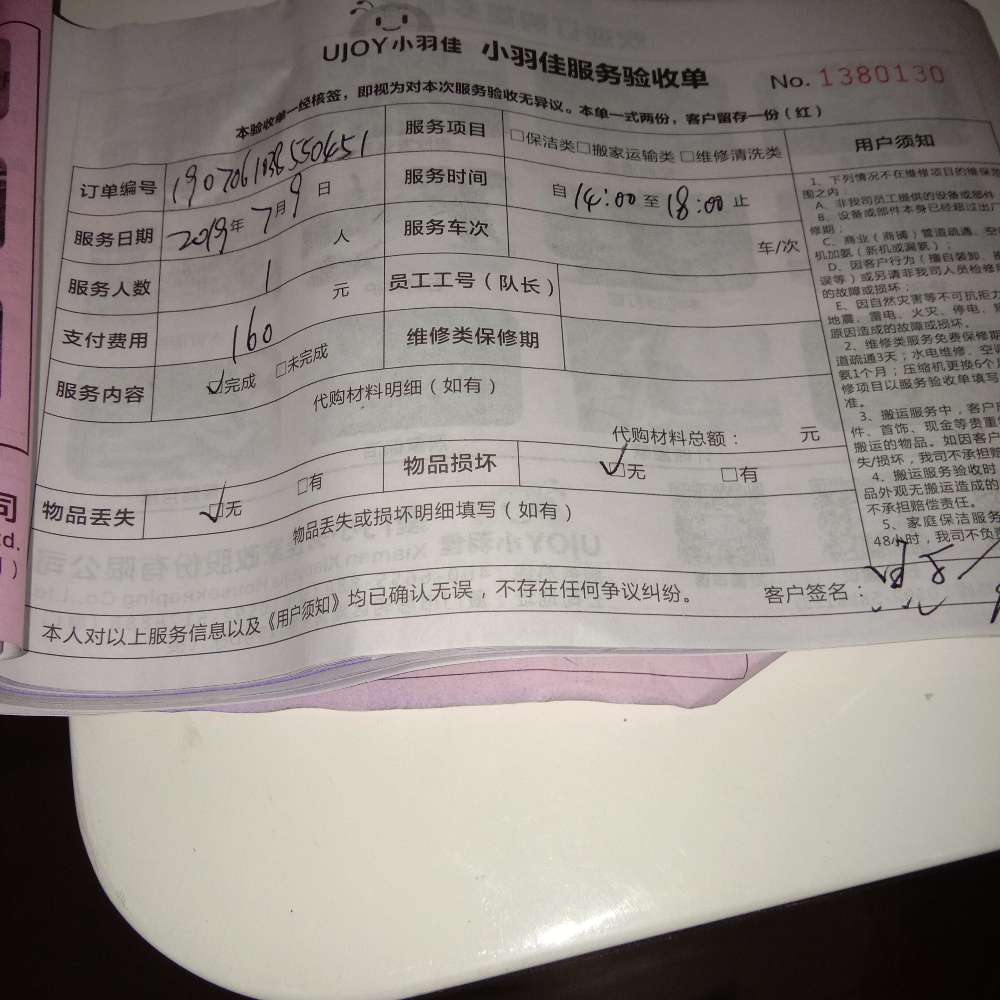 UJOY小羽佳 小羽佳服务验收单 No. 1380130
本验收单一经核签，即视为对本次服务验收无异议。本单一式两份，客户留存一份（红）
订单编号 190706103 550451 服务项目 □保洁类□搬家运输类□维修清洗类
服务日期 2019年7月9日 服务时间 自14:00至18:00止
服务人数 1 人 服务车次 车/次
支付费用 160 元 员工工号（队长）
服务内容 ☑完成 □未完成 维修类保修期
代购材料明细（如有）
代购材料总额： 元
物品丢失 ☑无 □有 物品损坏 ☑无 □有
物品丢失或损坏明细填写（如有）
本人对以上服务信息以及《用户须知》均已确认无误，不存在任何争议纠纷。 客户签名：
用户须知
1、下列情况不在维修项目的维保范
围之内：
A、非我司员工提供的设备或部件
B、设备或部件本身已经超过出厂
修期；
C、商业（商铺）管道疏通、空
机加氨（新机或漏氨）；
D、因客户行为（擅自装卸、
误等）或另请非我司人员检修
的故障或损坏；
E、因自然灾害等不可抗拒力
地震、雷电、火灾、停电、
原因造成的故障或损坏。
2、维修类服务免费保修期
道疏通3天；水电维修、空
氨1个月；压缩机更换6个
修项目以服务验收单填写
准。
3、搬运服务中，客户
件、首饰、现金等贵重
搬运的物品。如因客户
失/损坏，我司不承担
4、搬运服务验收时
品外观无搬运造成的
不承担赔偿责任。
5、家庭保洁服务
48小时，我司不负
司
td.